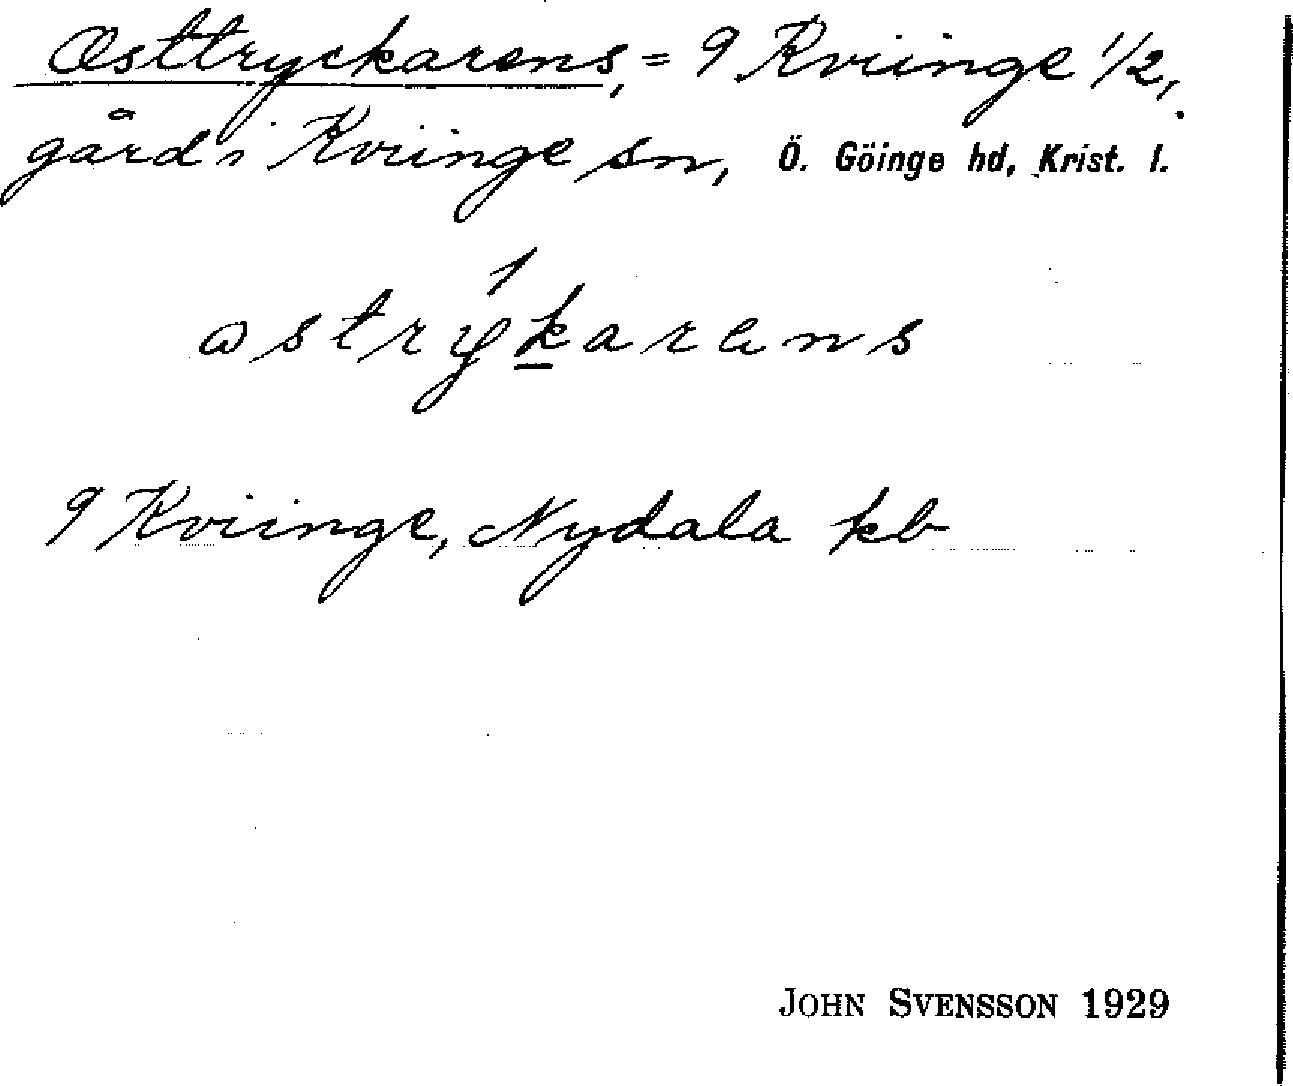 Osttryckarens, = 9 Kviinge ½,
gård i Kviinge sn, Ö. Göinge hd, Krist. l.
9 Kviinge, Nydala kb
JOHN SVENSSON 1929